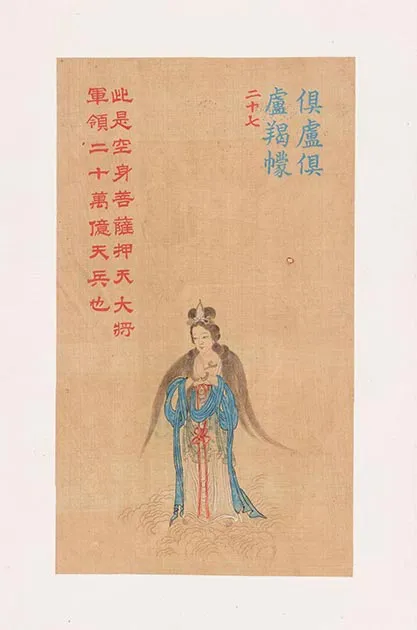 俱盧俱
盧羯幪
二十七
此是空身菩薩押天大將
軍領二十萬億天兵也